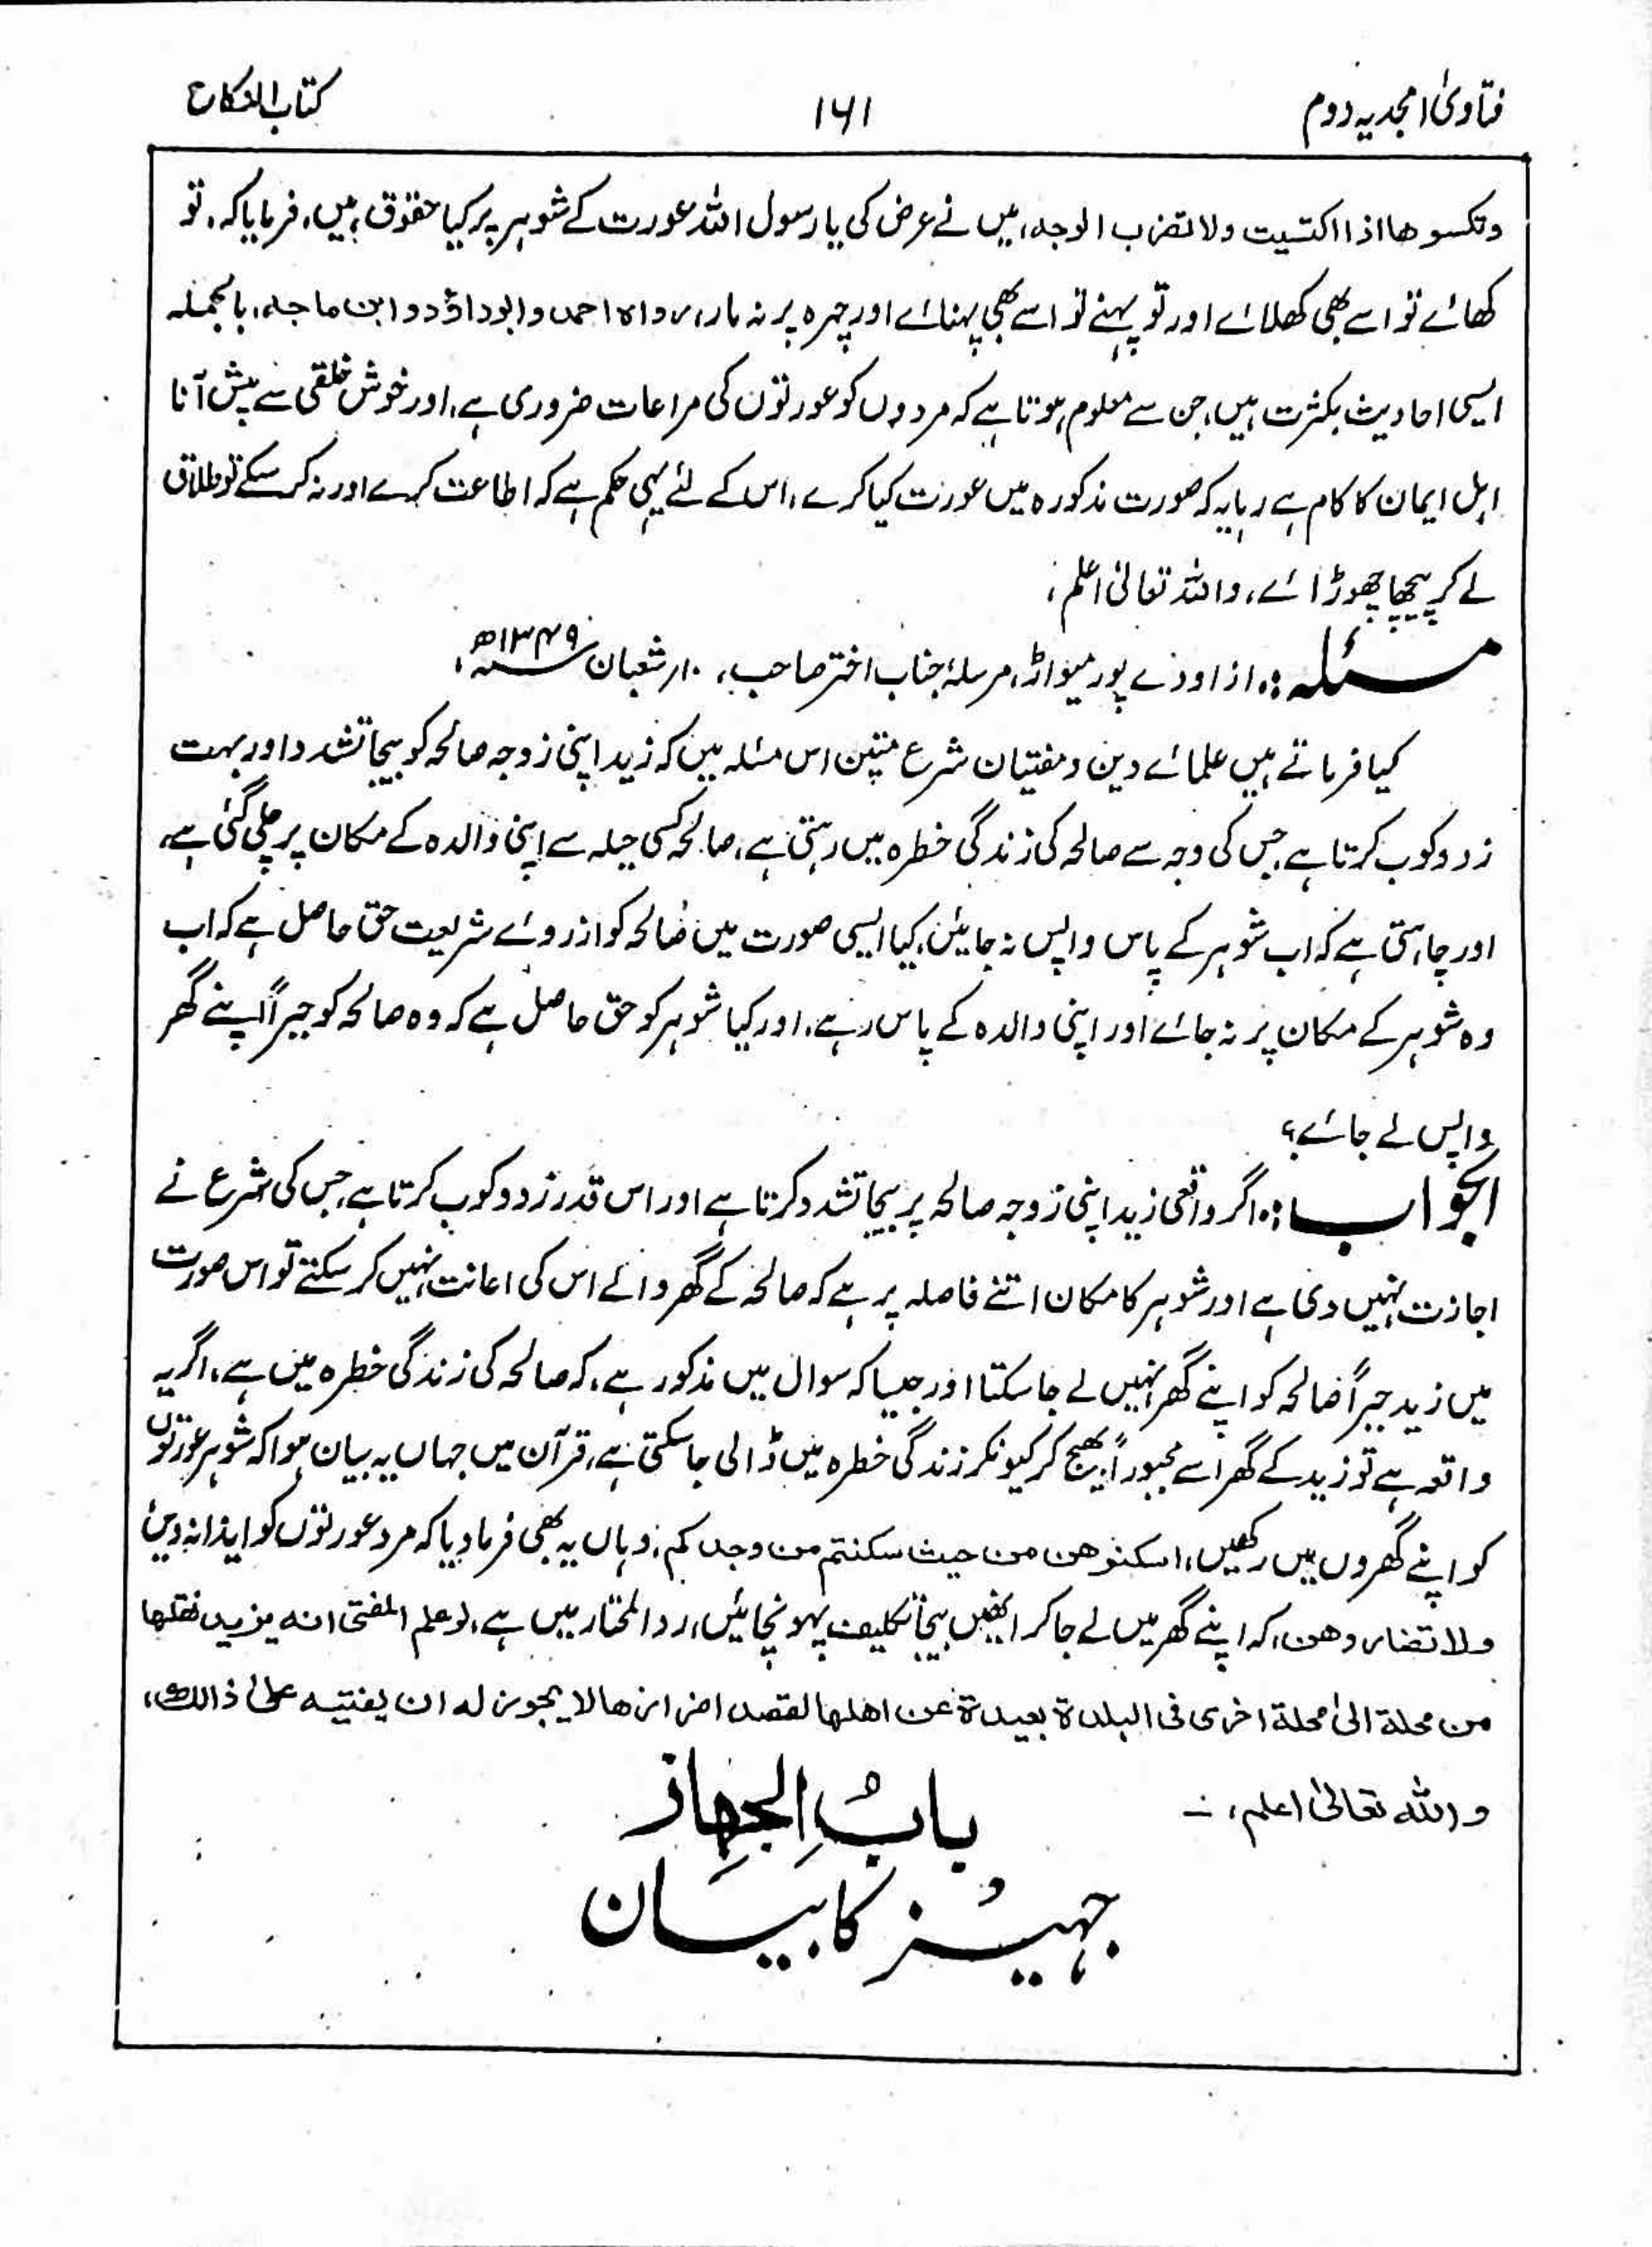 فتاویٰ امجدیہ دوم
۱۶۱
کتاب النکاح
وتکسوھا اذا اکتسیت ولا تضرب الوجہ، میں نے عرض کی یا رسول اللہ عورت کے شوہر پر کیا حقوق ہیں، فرمایا کہ، تو
کھائے تو اسے بھی کھلائے اور تو پہنے تو اسے بھی پہنائے اور چہرہ پر نہ مار، رواہ احمد وابوداؤد وابن ماجہ، بالجملہ
ایسی احادیث بکثرت ہیں، جن سے معلوم ہوتا ہے کہ مردوں کو عورتوں کی مراعات ضروری ہے، اور خوش خلقی سے پیش آنا
اہل ایمان کا کام ہے رہا یہ کہ صورت مذکورہ میں عورت کیا کرے، اس کے لئے یہی حکم ہے کہ اطاعت کرے اور نہ کر سکے تو طلاق
لے کر پیچھا چھوڑائے، واللہ تعالیٰ اعلم،
مسئلہ:۔ از اودے پور میواڑ، مرسلہ جناب اختر صاحب، ۱۰ر شعبان ۱۳۴۹ھ،
کیا فرماتے ہیں علمائے دین ومفتیان شرع متین اس مسئلہ میں کہ زید اپنی زوجہ صالحہ کو بیجا تشدد اور بہت
زدوکوب کرتا ہے جس کی وجہ سے صالحہ کی زندگی خطرہ میں رہتی ہے، صالحہ کسی حیلہ سے اپنی والدہ کے مکان پر چلی گئی ہے،
اور چاہتی ہے کہ اب شوہر کے پاس واپس نہ جائیں، کیا ایسی صورت میں صالحہ کو ازروئے شریعت حق حاصل ہے کہ اب
وہ شوہر کے مکان پر نہ جائے اور اپنی والدہ کے پاس رہے، اور کیا شوہر کو حق حاصل ہے کہ وہ صالحہ کو جبراً اپنے گھر
واپس لے جائے؟
الجواب:۔ اگر واقعی زید اپنی زوجہ صالحہ پر بیجا تشدد کرتا ہے اور اس قدر زدوکوب کرتا ہے، جس کی شرع نے
اجازت نہیں دی ہے اور شوہر کا مکان اتنے فاصلہ پر ہے کہ صالحہ کے گھر والے اس کی اعانت نہیں کر سکتے تو اس صورت
میں زید جبراً صالحہ کو اپنے گھر نہیں لے جا سکتا اور جیسا کہ سوال میں مذکور ہے، کہ صالحہ کی زندگی خطرہ میں ہے، اگر یہ
واقعہ ہے تو زید کے گھر اسے مجبوراً بھیج کر کیونکر زندگی خطرہ میں ڈالی جا سکتی ہے، قرآن میں جہاں یہ بیان ہوا کہ شوہر عورتوں
کو اپنے گھروں میں رکھیں، اسکنوھن من حیث سکنتم من وجدکم، وہاں یہ بھی فرمادیا کہ مرد عورتوں کو ایذا نہ دیں
ولا تضاروھن، کہ اپنے گھر میں لے جا کر انھیں بیجا تکلیف پہونچائیں، رد المحتار میں ہے، لو علم المفتی انہ یرید نقلھا
من محلۃ الیٰ محلۃ اخری فی البلدۃ بعیدۃ عن اھلھا لقصد اضرارھا لا یجوز لہ ان یفتیہ علیٰ ذالک،
واللہ تعالیٰ اعلم، ۔
بابُ الجِهاز
جہیز کا بیان